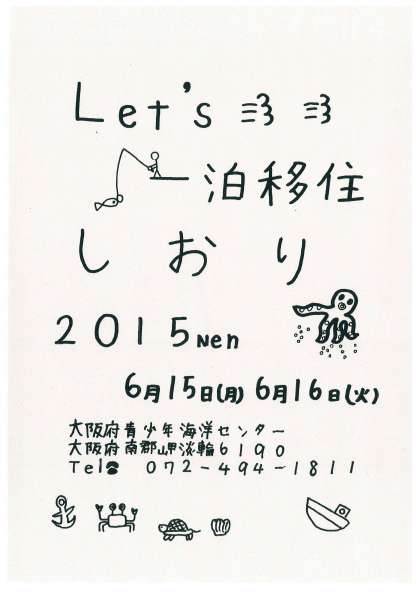 Let's
一泊移住
しおり
2015 Nen
6月15日(月) 6月16日(火)
大阪府青少年海洋センター
大阪府南郡岬淡輪6190
Tel☎ 072-494-1811